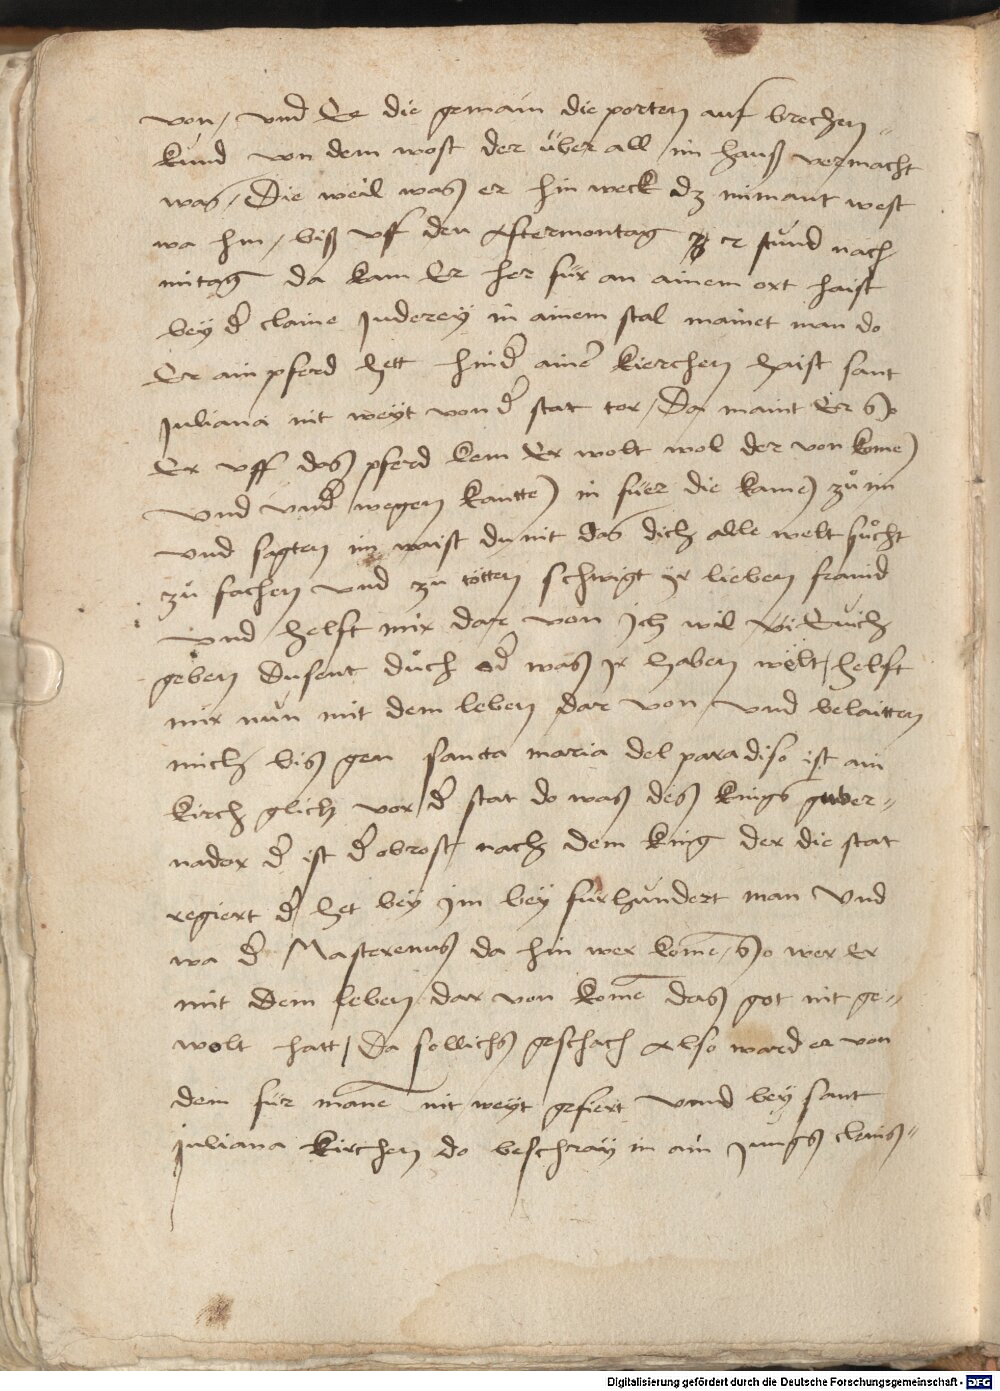 von / vnd Ee die gemain die porten auf brechen
kund von dem wost der über all im hauß vermacht
was / Die weil was er hin weck dz nimant west
wa hin / biß vff den Aftermontag er stund nach
mitag da kam Er her für an ainem ort haist
bey d̾ claine Juderey in ainem stal mainet man do
Er ain pferd hett hind̾ aine̾ kierchen haist sant
Juliana nit weyt von d̾ stat tor / Da maint Er So
Er vff das pferd kem Er wolt wol der von kome
vnd vnd̾ wegen kantte in fuer die kame zů im
vnd sagten im waist du nit das dich alle welt sůcht
zů fachen vnd zu tötten schwigt ir lieben fraind
vnd helft mir dar von Jch wil Euich
geben dusent duch od̾ was ir haben wölt / helft
mir nun mit dem leben dar von vnd belaitten
mich bis gen sancta maria del paradiso ist ain
kirch glich vor d̾ stat do was des kings guber-
nador d̾ ist d̾ obrost nach dem king der die stat
regiert d̾ het bey im bey fürhundert man Vnd
wa d̾ Masterenus da hin wer kome̅ / So wer Er
mit dem leben dar von kome̅ das got nit ge-
wolt hatt / Da sollichs geschach Also ward er von
dem für mane̅ nit weyt gefiert vnnd bey sant
juliana kirchen do beschray in ain jungs clains-
Digitalisierung gefördert durch die Deutsche Forschungsgemeinschaft - DFG